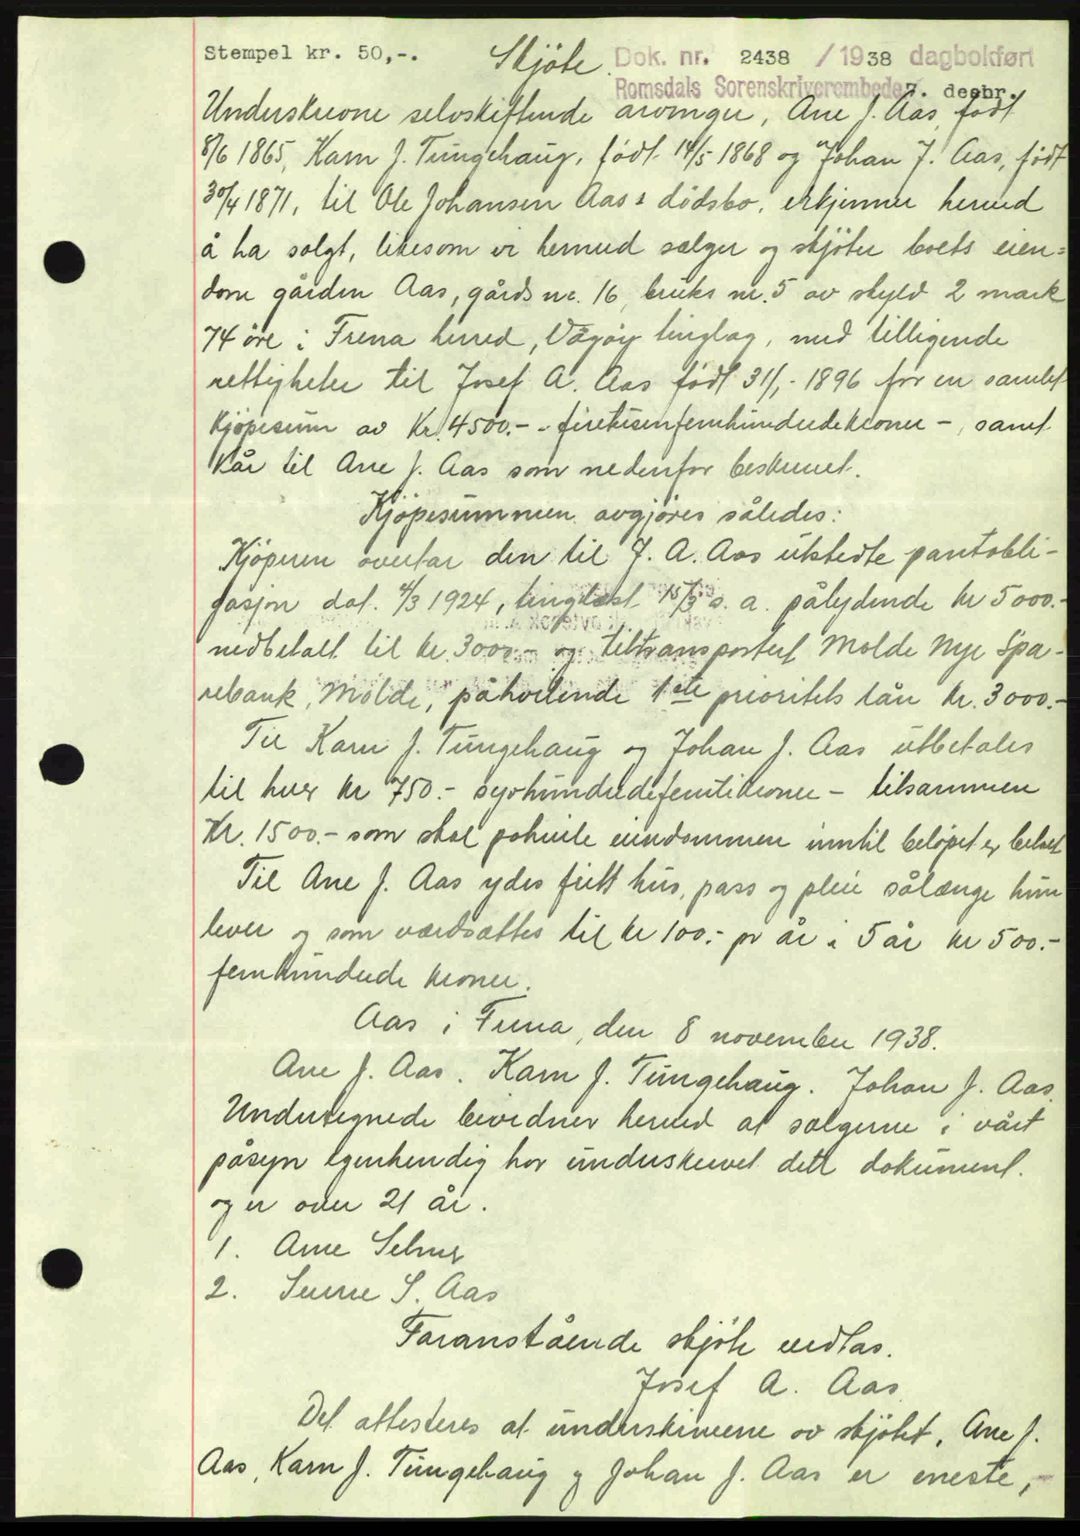 Stempel kr. 50,-. Skjöte. Dok. nr. 2438 / 1938 dagbokført
Romsdals Sorenskriverembede 7. desbr.
Underskrevne selvskiftende arvinger, Ane J. Aas, født
8/6 1865, Karn J. Tungehaug, født 14/5 1868 og Johan J. Aas, født
30/4 1871, til Ole Johansen Aas's dödsbo, erkjenner herved
å ha solgt, likesom vi herved sælger og skjöter boets eien=
dom gården Aas, gårds nr. 16, bruks nr. 5 av skyld 2 mark
74 öre i Frena herred, Vågöy tinglag, med tilligende
rettigheter til Josef A. Aas født 31/1- 1896 for en samlet
Kjöpesum av Kr. 4500.- - firetusenfemhundredekroner -, samt
Kår til Ane J. Aas som nedenfor beskrevet.
Kjöpesummen avgjöres således:
Kjöperen overtar den til J. A. Aas utstedte pantobli-
gasjon dat. 4/3 1924, tinglæst 15/3 s. a. pålydende kr 5000.-
nedbetalt til kr 3000.- og tiltransportert Molde Nye Spa-
rebank, Molde, påhvilende 1ste prioritets lån kr. 3000.-
Til Karn J. Tungehaug og Johan J. Aas utbetales
til hver kr 750.- syvhundredefemtikroner - tilsammen
Kr. 1500.- som skal påhvile eiendommen inntil belöpet er betalt
Til Ane J. Aas ydes fritt hus, pass og pleie sålænge hun
lever og som værdsættes til kr 100.- pr år i 5 år kr 500.-
femhundrede kroner.
Aas i Frena, den 8 november 1938.
Ane J. Aas. Karn J. Tungehaug. Johan J. Aas.
Undertegnede bevidner herved at sælgerne i vårt
påsyn egenhendig har underskrevet dette dokument.
og er over 21 år.
1. Arne Selmer
2. S. Aas
Foranstående skjöte vedtas.
Josef A. Aas.
Det attesteres at underskriverne av skjötet, Ane J.
Aas, Karn J. Tungehaug og Johan J. Aas er eneste,